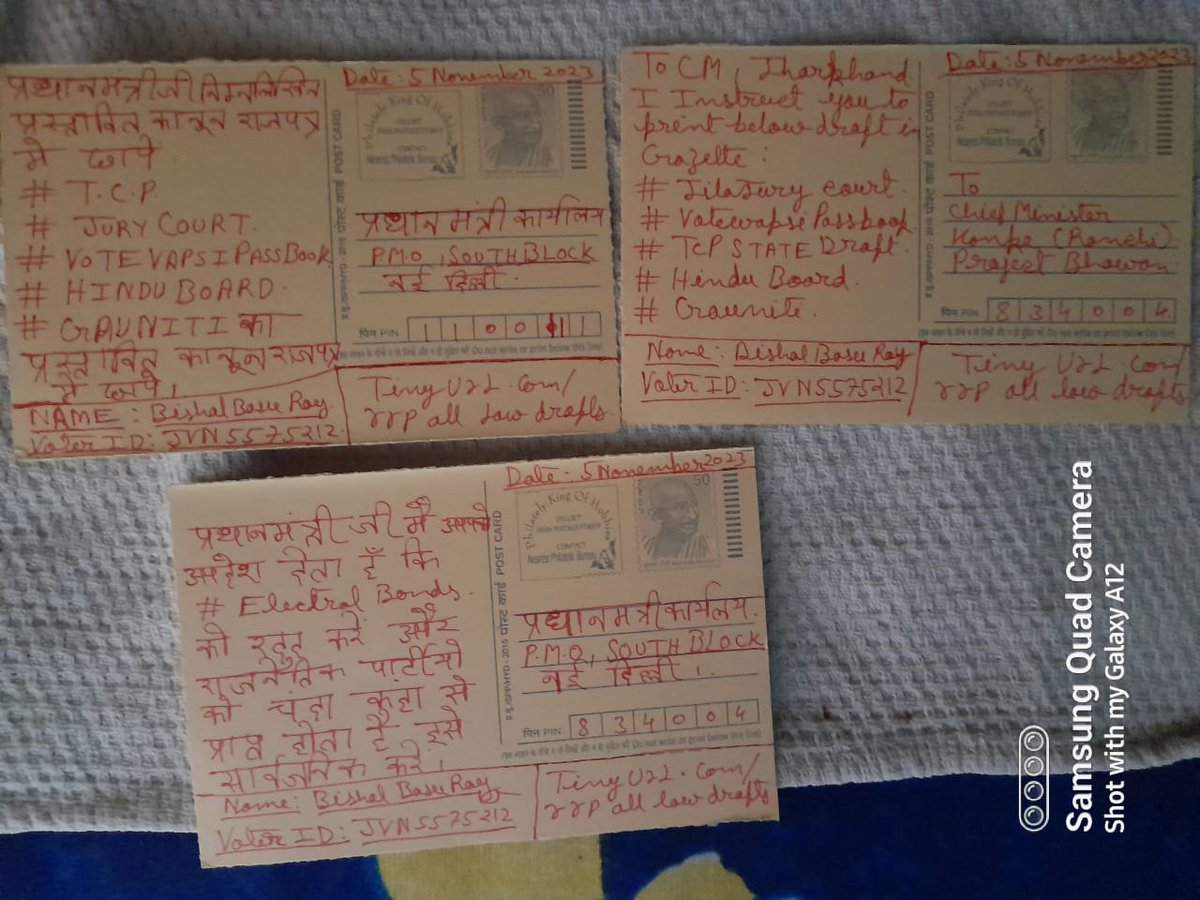 प्रधानमंत्रीजी निम्नलिखित
प्रस्तावित कानून राजपत्र
में छापे
# T.C.P.
# JURY COURT.
# VOTE VAPSI PASSBOOK
# HINDU BOARD.
# GAUNITI का
प्रस्तावित कानून राजपत्र
में छापे।
NAME : Bishal Basu Ray
Voter ID: JVN5575212
Date: 5 November 2023
Philately King Of Hobbies
COLLECT
INDIA POSTAGE STAMPS
CONTACT
Nearest Philatelic Bureau
50
पोस्ट कार्ड POST CARD
प्रधान मंत्री कार्यालय
P.M.O, SOUTH BLOCK
नई दिल्ली.
पिन PIN 110011
Do not write or print below this line
Tiny Url.Com/
rrp all law drafts
To CM, Jharkhand.
I Instruct you to
print below draft in
Gazette:
# Jilajury court.
# Votewapsi Passbook
# TCP STATE Draft.
# Hindu Board.
# Gauniti.
Name: Bishal Basu Ray
Voter ID: JVN5575212
Date: 5 November 2023
Philately King Of Hobbies
COLLECT
CONTACT
Nearest Philatelic Bureau
पोस्ट कार्ड POST CARD
To
Chief Minister
Kanke (Ranchi)
Project Bhawan
पिन PIN 834004
Do not write or print below this line
Tiny Url.Com/
rrp all law drafts
प्रधानमंत्री जी मै आपको
आदेश देता हूँ कि
# Electral Bonds.
को रद्द करें और
राजनैतिक पार्टीयो
को चंदा कहा से
प्राप्त होता है इसे
सार्वजनिक करे।
Name: Bishal Basu Ray
Voter ID: JVN5575212
Date: 5 November 2023
Philately King Of Hobbies
COLLECT
INDIA POSTAGE STAMPS
CONTACT
Nearest Philatelic Bureau
50
2015 पोस्ट कार्ड POST CARD
प्रधानमंत्री कार्यलय.
P.M.O, SOUTH BLOCK
नई दिल्ली।.
पिन PIN 834004
Do not write or print below this line
Tiny Url.Com/
rrp all law drafts
Samsung Quad Camera
Shot with my Galaxy A12